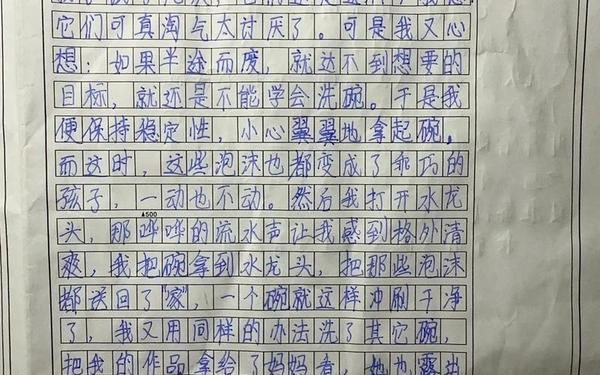 它们可真淘气太讨厌了。可是我又心
想：如果半途而废，就达不到想要的
目标，就还是不能学会洗碗。于是我
便保持稳定性，小心翼翼地拿起碗。
而这时，这些泡沫也都变成了乖巧的
孩子，一动也不动。然后我打开水龙
A500
头，那哗哗的流水声让我感到格外清
爽，我把碗拿到水龙头，把那些泡沫
都送回了“家”，一个碗就这样冲刷干净
了，我又用同样的办法洗了其它碗，
把我的作品拿给了妈妈看，她也露出